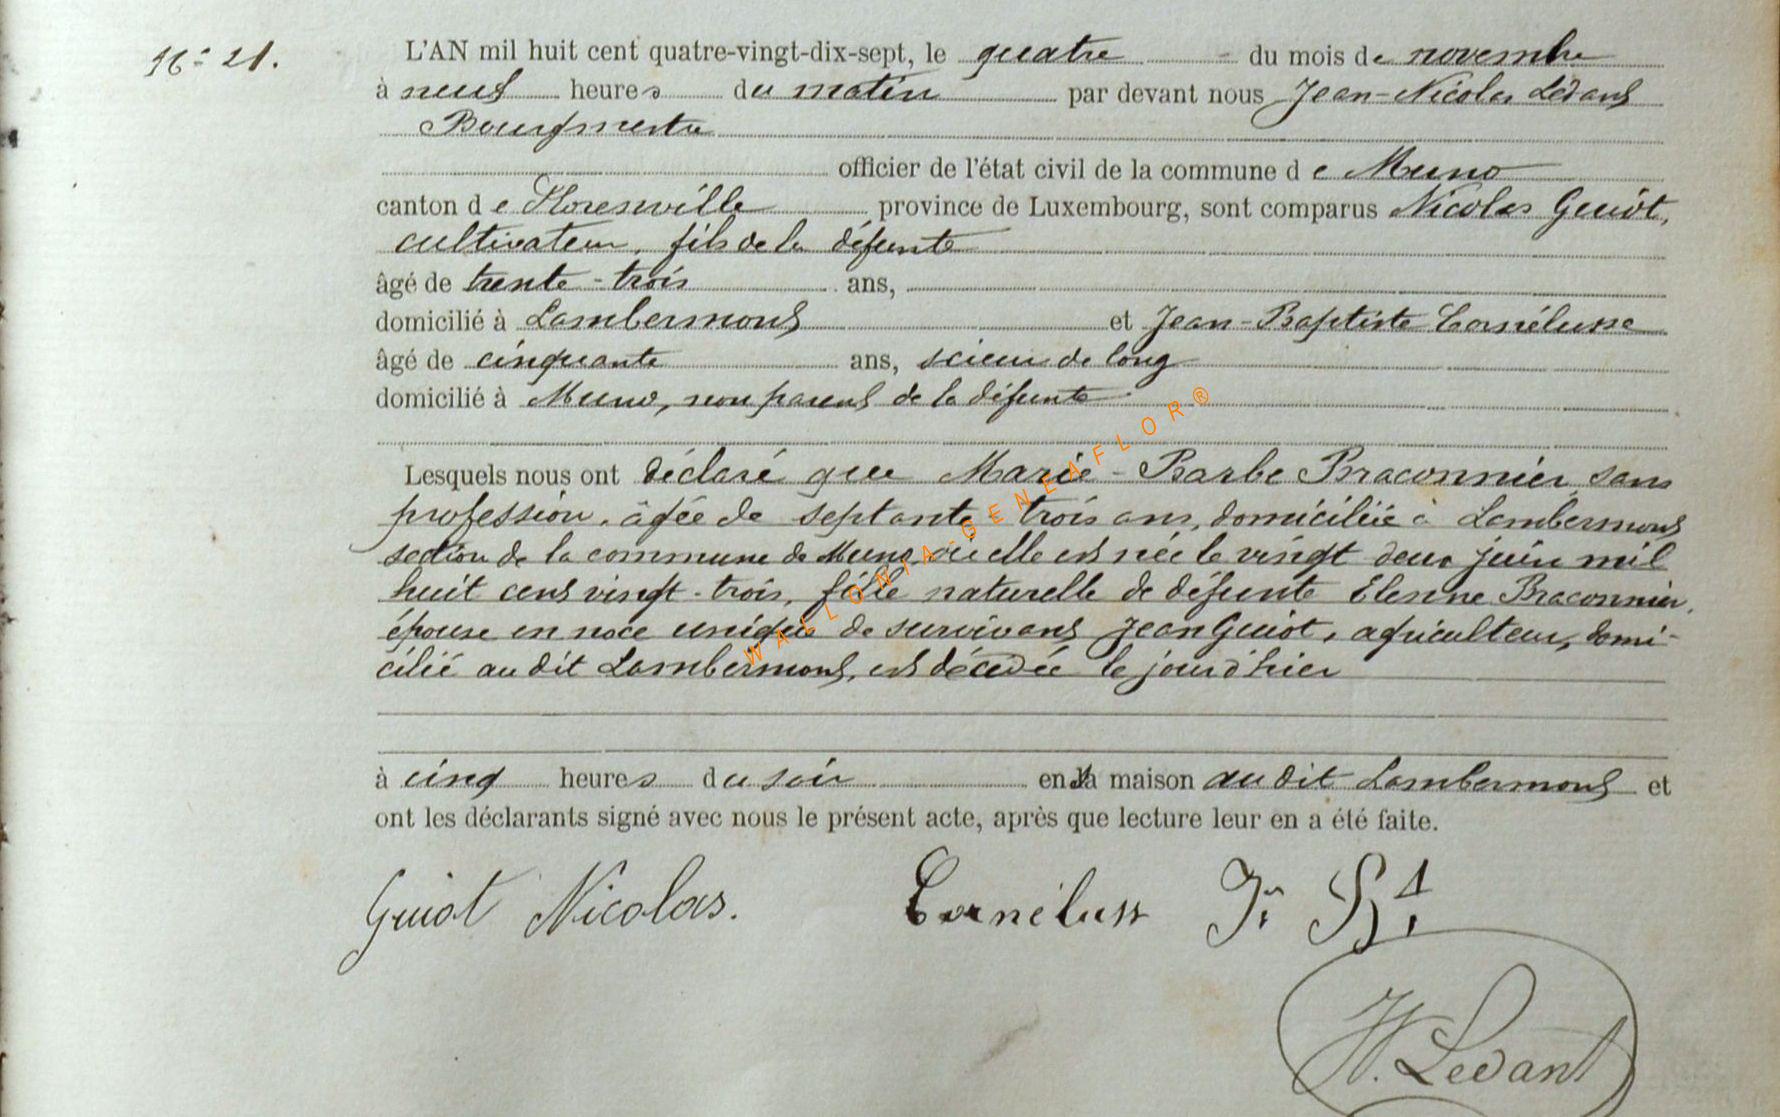 N° 21.
L'AN mil huit cent quatre-vingt-dix-sept, le quatre du mois de novembre
à neuf heures du matin par devant nous Jean-Nicolas Ledant
Bourgmestre
officier de l'état civil de la commune de Muno
canton de Florenville province de Luxembourg, sont comparus Nicolas Guiot,
cultivateur, fils de la défunte
âgé de trente-trois ans,
domicilié à Lambermont et Jean-Baptiste Cornélusse
âgé de cinquante ans, scieur de long
domicilié à Muno, non parent de la défunte
Lesquels nous ont déclaré que Marie-Barbe Braconnier, sans
profession, âgée de septante-trois ans, domiciliée à Lambermont
section de la commune de Muno où elle est née le vingt deux juin mil
huit cent vingt-trois, fille naturelle de défunte Elenne Braconnier,
épouse en noce unique de survivant Jean Guiot, agriculteur, domi-
cilié au dit Lambermont, est décédée le jour d'hier
à cinq heures du soir en sa maison au dit Lambermont et
ont les déclarants signé avec nous le présent acte, après que lecture leur en a été faite.
Guiot Nicolas. Cornéluss Jn Bt
N. Ledant
WALLONIA-GENEAFLOR®